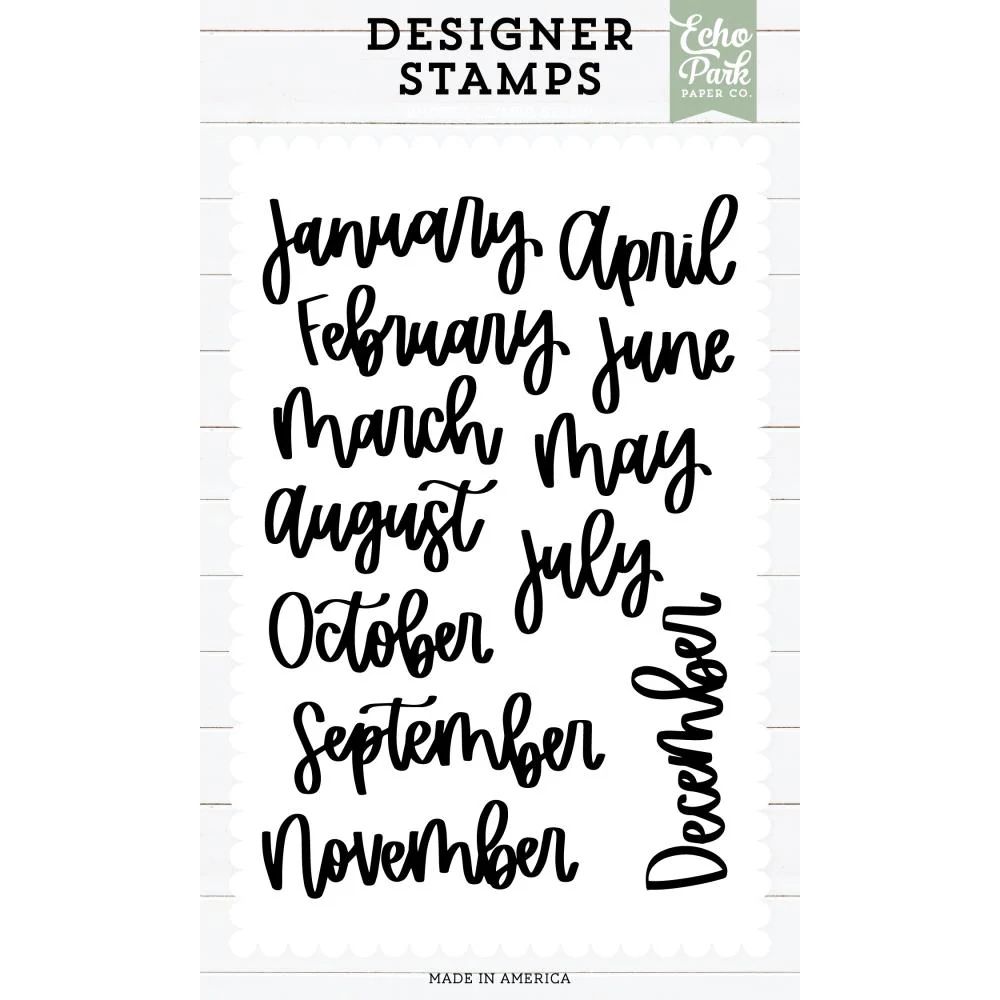 DESIGNER
STAMPS
Echo
Park
PAPER CO.
January
April
February
June
March
May
August
July
October
December
September
November
MADE IN AMERICA